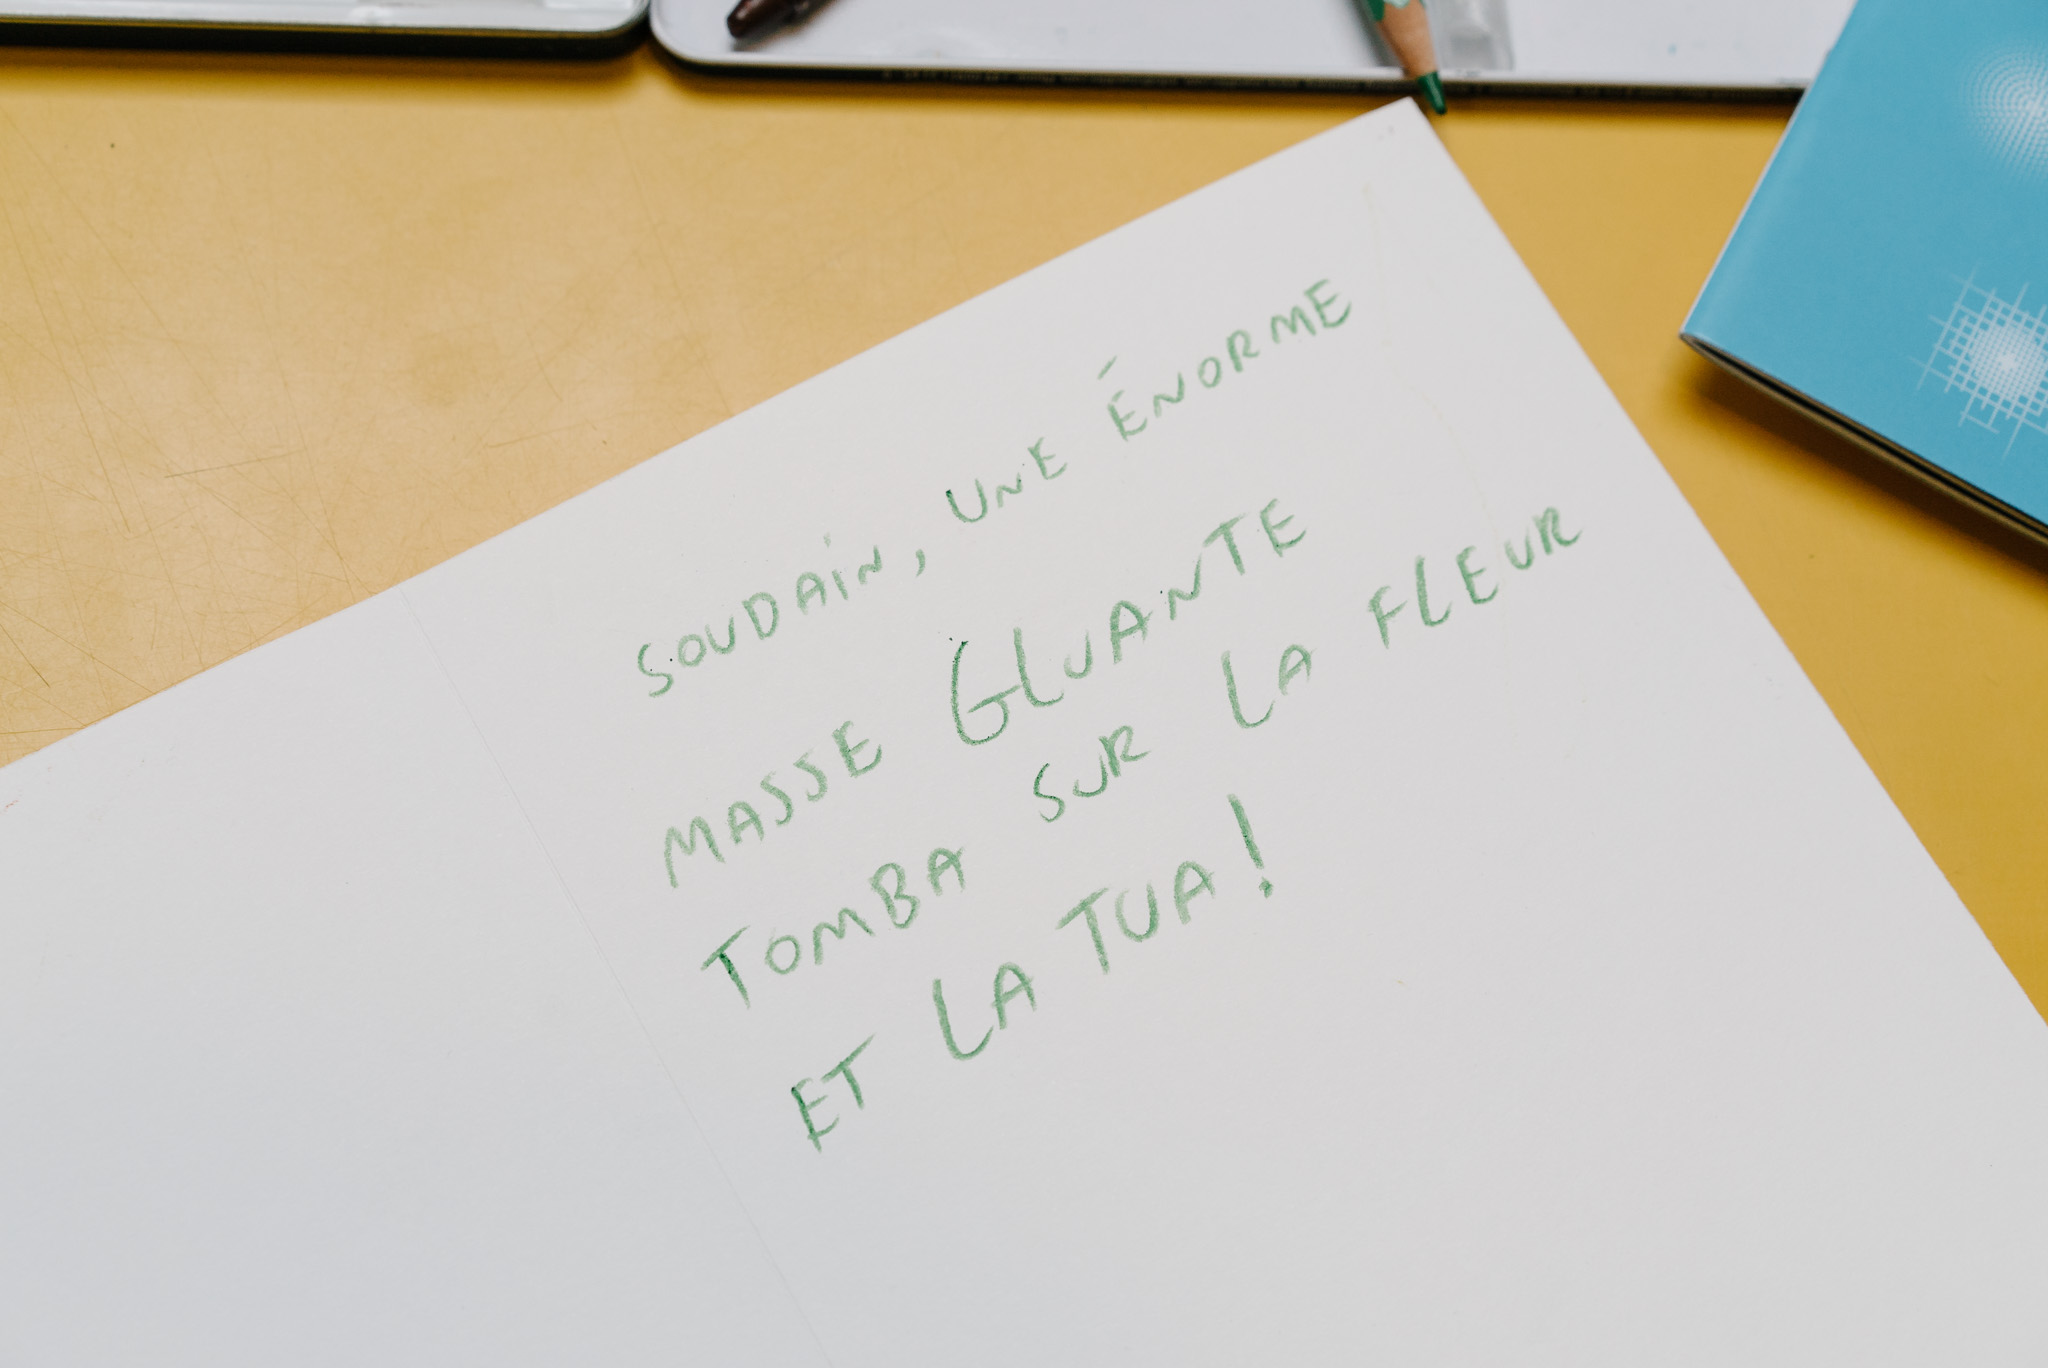 SOUDAIN, UNE ÉNORME
MASSE GLUANTE
TOMBA SUR LA FLEUR
ET LA TUA !